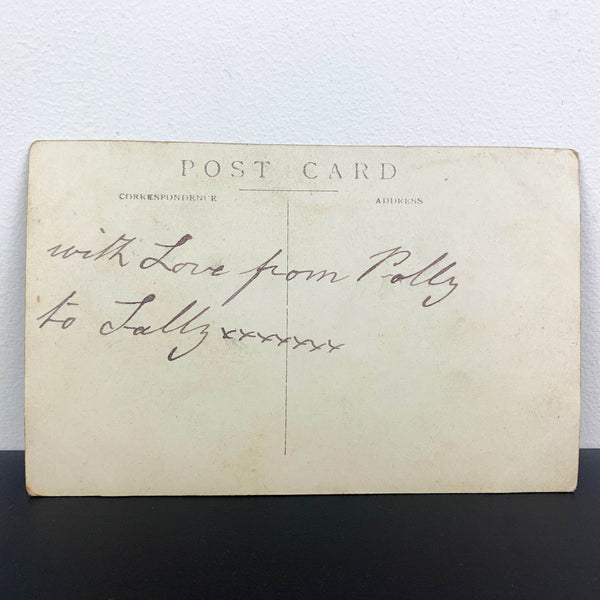 POST CARD
CORRESPONDENCE
ADDRESS
with Love from Polly
to Sally xxxxxxx